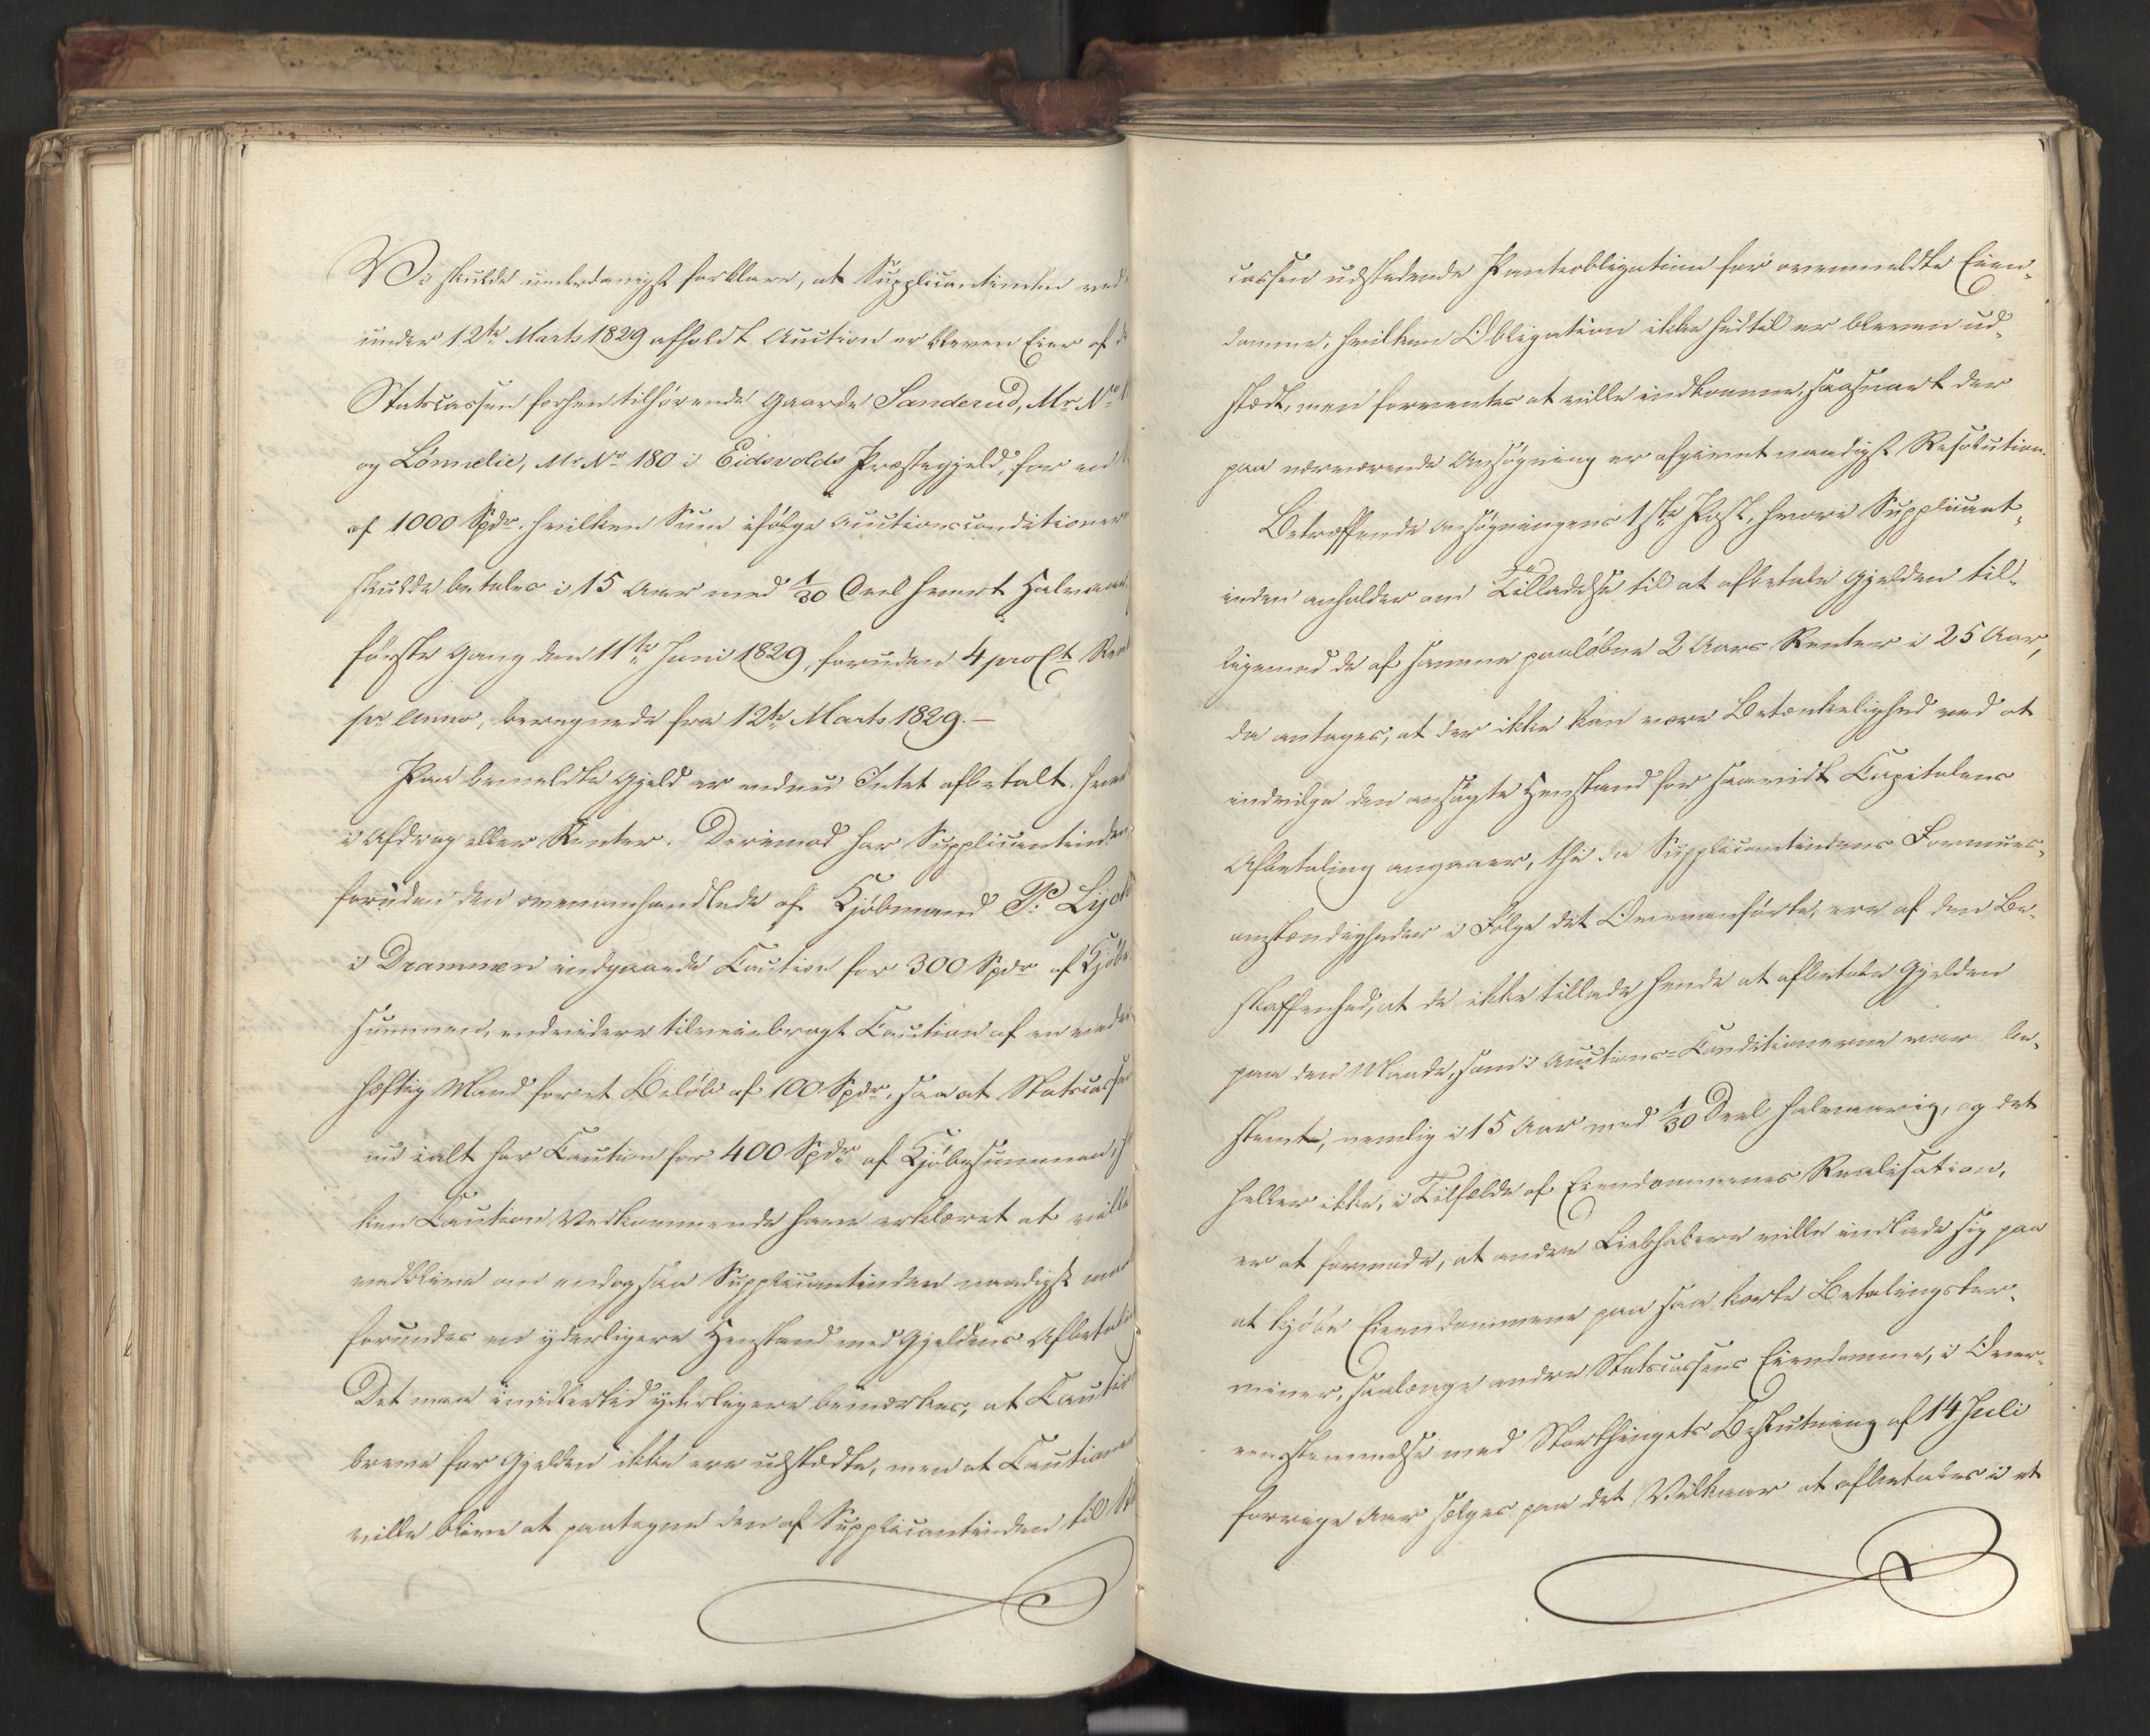 Vi skulde underdanigst forklare, at Supplicantinden ved
under 12te Marts 1829 afholdt Auction er bleven Eier af d
Statscassen forhen tilhørende Gaarde Sanderud, Mr No 1
og Lönnelie, Mr No 180 i Eidsvolds Præstegjeld, for en
af 1000 Spdr. hvilken Sum ifølge Auctionsconditioner
skulde betales i 15 Aar med 1/30 Deel hvert Halvaar
første Gang den 11te Juni 1829, foruden 4 pro Ct Ren
pr Anno, beregnede fra 12te Marts 1829.—
Paa bemeldte Gjeld er endnu Intet afbetalt, hver
i Afdrag eller Renter. Derimod har Supplicantinden
foruden den ovenomhandlede af Kjöbmand P: Lyck
i Drammen indgaaede Caution for 300 Spdr af Kjöbe
summen, endvidere tilveiebragt Caution af en vede
hæftig Mand for et Belöb af 100 Spdr, saa at Statscasse
nu ialt har Caution for 400 Spdr af Kjöbesummen, h
ken Caution Vedkommende have erklæret at ville
vedblive om endogsaa Supplicantinden naadigst maa
forundes en yderligere Henstand med Gjeldens Afbetali
Det maa imidlertid yderligere bemærkes, at Cautio
breve for Gjelden ikke ere udstædte, men at Cautione
ville blive at paategne den af Supplicantinden til St
cassen udstedende Panteobligation for ovenmeldte Eien-
domme, hvilken Obligation ikke hidtil er bleven ud-
stædt, men forventes at ville indkomme, saasnart der
paa nærværende Ansøgning er afgivet naadigst Resolution.
Betreffende Ansøgningens 1ste Post, hvori Supplicant-
inden anholder om Tilladelse til at afbetale Gjelden til-
ligemed de af samme paaløbne 2 Aars Renter i 25 Aar,
da antages, at der ikke kan være Betænkelighed ved at
indvilge den ansøgte Henstand for saavidt Capitalens
Afbetaling angaaer, thi da Supplicantindens Formues-
omstændigheder i Følge det Ovenanførte, ere af den Be-
skaffenhed, at de ikke tillade hende at afbetale Gjelden
paa den Maade, som i Auctions-Conditionerne var be-
stemt, nemlig i 15 Aar med 1/30 Deel halvaarig, og det
heller ikke, i Tilfælde af Eiendommenes Realisation,
er at formode, at andre Liebhabere ville indlade sig paa
at kjöbe Eiendommene paa saa korte Betalingster-
miner, saalænge andre Statscassens Eiendomme, i Over-
eensstemmelse med Storthingets Beslutning af 14 Juli
forrige Aar sælges paa det Vilkaar at afbetales i et